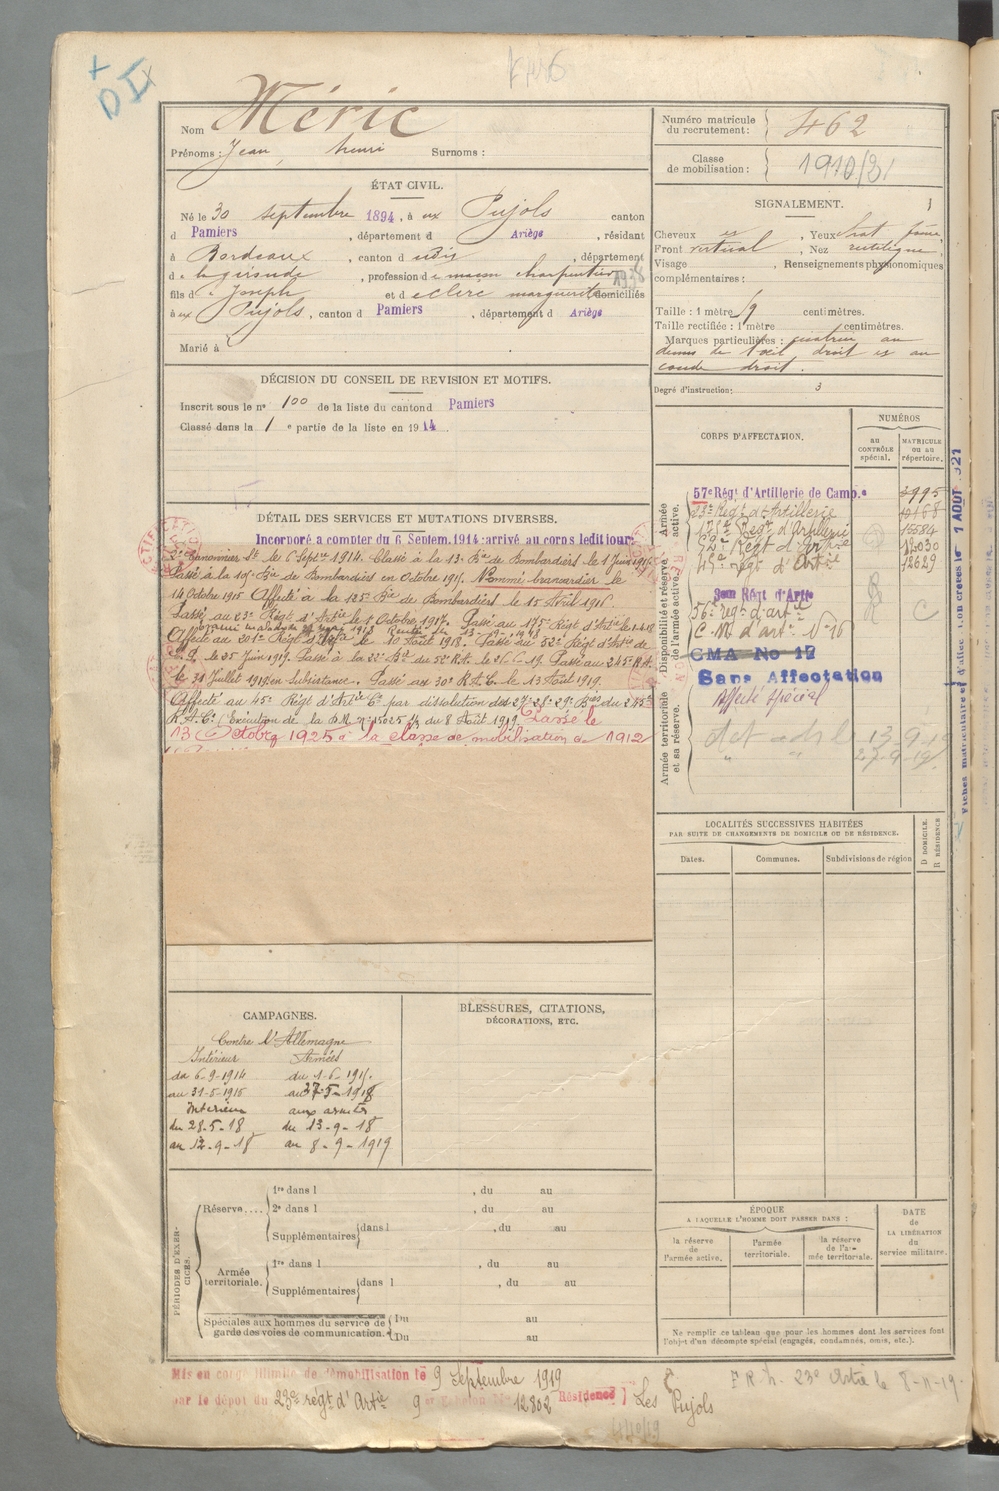 DI
Nom Méric
Prénoms : Jean, henri Surnoms :
Numéro matricule du recrutement : 462
Classe de mobilisation : 1910/31
ÉTAT CIVIL.
Né le 30 septembre 1894, à ux Pujols canton
d Pamiers, département d Ariège, résidant
à Bordeaux, canton d udis, département
d e la gironde, profession d e maçon charpentier
1938
fils d e Joseph et d e clerc marguerite domiciliés
à ux Pujols, canton d Pamiers, département d Ariège
Marié à
SIGNALEMENT.
Cheveux, Yeux
Front vertical, Nez rectiligne
Visage, Renseignements physionomiques
complémentaires :
Taille : 1 mètre 59 centimètres.
Taille rectifiée : 1 mètre centimètres.
Marques particulières : cicatrice au
dessus de l'œil droit et au
coude droit.
Degré d'instruction : 3
DÉCISION DU CONSEIL DE REVISION ET MOTIFS.
Inscrit sous le n° 100 de la liste du canton d Pamiers
Classé dans la 1e partie de la liste en 1914.
DÉTAIL DES SERVICES ET MUTATIONS DIVERSES.
Incorporé à compter du 6 Septem. 1914 : arrivé au corps ledit jour;
2e Canonnier St le 6 Septre 1914. Classé à la 13e Bie de Bombardiers le 1 Juin 1915
Passé à la 10e Bie de Bombardiers en Octobre 1915. Nommé brancardier le
14 Octobre 1915 Affecté à la 125e Bie de Bombardiers le 15 Avril 1916.
Passé au 23e Régt d'Artie le 1 Octobre 1917. Passé au 175e Régt d'Artie le 1.4.18
évacué malade le 28 mai 1918 Rentré le 13-9-1918
Affecté au 201e Régt d'Arta le 10 Août 1918. Passé au 52e Régt d'Artie de
C. le 25 Juin 1919. Passé à la 22e Bie du 52e R.A. le 26-6-19. Passé au 245e R.A.
le 31 Juillet 1919 en Subsistance. Passé au 30e R.A.C. le 13 Août 1919.
Affecté au 45e Régt d'Artie Cie par dissolution des 27e-28e-29e Bies du 245e
R.A.C. (Exécution de la D.M. n° 15025 4/3 du 8 Août 1919. Classé le
13 Octobre 1925 à la classe de mobilisation de 1912
CORPS D'AFFECTATION.
NUMÉROS
au CONTRÔLE spécial.
MATRICULE ou au répertoire.
Armée active.
57e Régt d'Artillerie de Camp.e 3995
23e Régt d'Artillerie 19168
175e Régt d'Artillerie 15584
52e Régt d'Artie 14030
45e régt d'Artie 12629
Disponibilité et réserve de l'armée active.
3em Régt d'Artie
56e régt d'artie C
C.M. d'artie No 16
CMA No 17
Sans Affectation
Affecté spécial
Armée territoriale et sa réserve.
13-9-19
27-9-19
Fiches matriculaire et d'affectation créées le 1 AOUT 1921
LOCALITÉS SUCCESSIVES HABITÉES
PAR SUITE DE CHANGEMENTS DE DOMICILE OU DE RÉSIDENCE.
Dates. Communes. Subdivisions de région D DOMICILE. R RÉSIDENCE
CAMPAGNES.
Contre l'Allemagne
Intérieur Armées
du 6-9-1914 du 1-6-1915.
au 31-5-1915 au 27-5-1918
Intérieur aux armées
du 28-5-18 du 13-9-18
au 12-9-18 au 8-9-1919
BLESSURES, CITATIONS,
DÉCORATIONS, ETC.
PÉRIODES D'EXERCICES.
Réserve....
1re dans l , du au
2e dans l , du au
Supplémentaires dans l , du au
Armée territoriale.
1re dans l , du au
Supplémentaires dans l , du au
Spéciales aux hommes du service de garde des voies de communication.
Du au
Du au
ÉPOQUE
A LAQUELLE L'HOMME DOIT PASSER DANS :
la réserve de l'armée active.
l'armée territoriale.
la réserve de l'armée territoriale.
DATE DE LA LIBÉRATION du service militaire.
Ne remplir ce tableau que pour les hommes dont les services font
l'objet d'un décompte spécial (engagés, condamnés, omis, etc.).
Mis en congé illimité de démobilisation le 9 Septembre 1919
par le dépôt du 23e régt d'Artie 9e Echelon No 12802 Résidence Les Pujols
F.R.h. 23e Artie le 8-11-19.